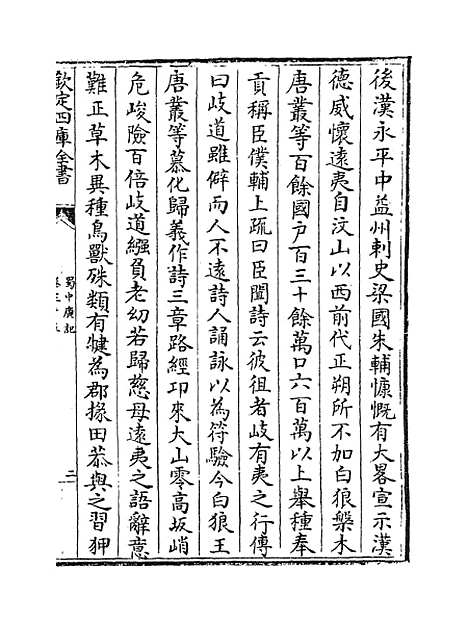 後漢永平中益州刺史梁國朱輔慷慨有大畧宣示漢
德威懷遠夷自汶山以西前代正朔所不加白狼槃木
唐叢等百餘國户百三十餘萬口六百萬以上舉種奉
貢稱臣僕輔上疏曰臣聞詩云彼徂者岐有夷之行傳
曰岐道雖僻而人不逺詩人誦詠以為符驗今白狼王
唐叢等慕化歸義作詩三章路經邛來大山零高坂峭
危峻險百倍岐道繦負老幼若歸慈母逺夷之語辭意
難正草木異種鳥獸殊類有犍為郡掾田恭與之習狎
欽定四庫全書
蜀中廣記
卷三十五
二